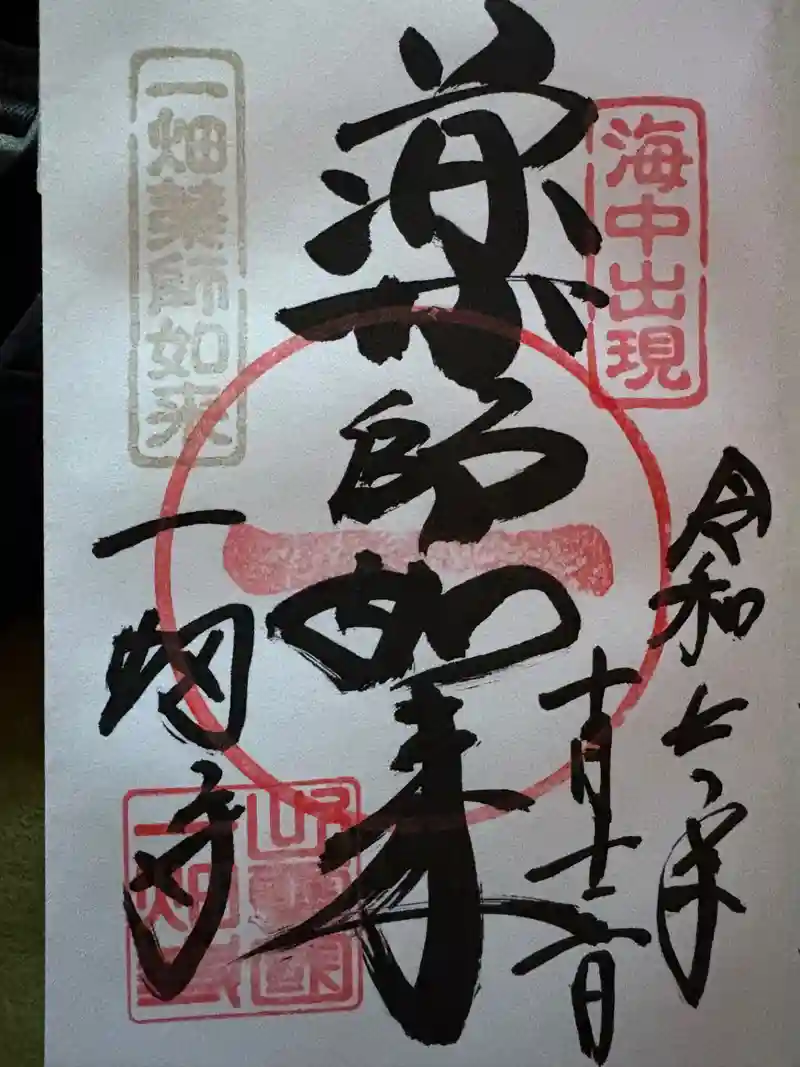 海中出現
令和七年
十月
薬師如来
一畑薬師如来
一畑寺